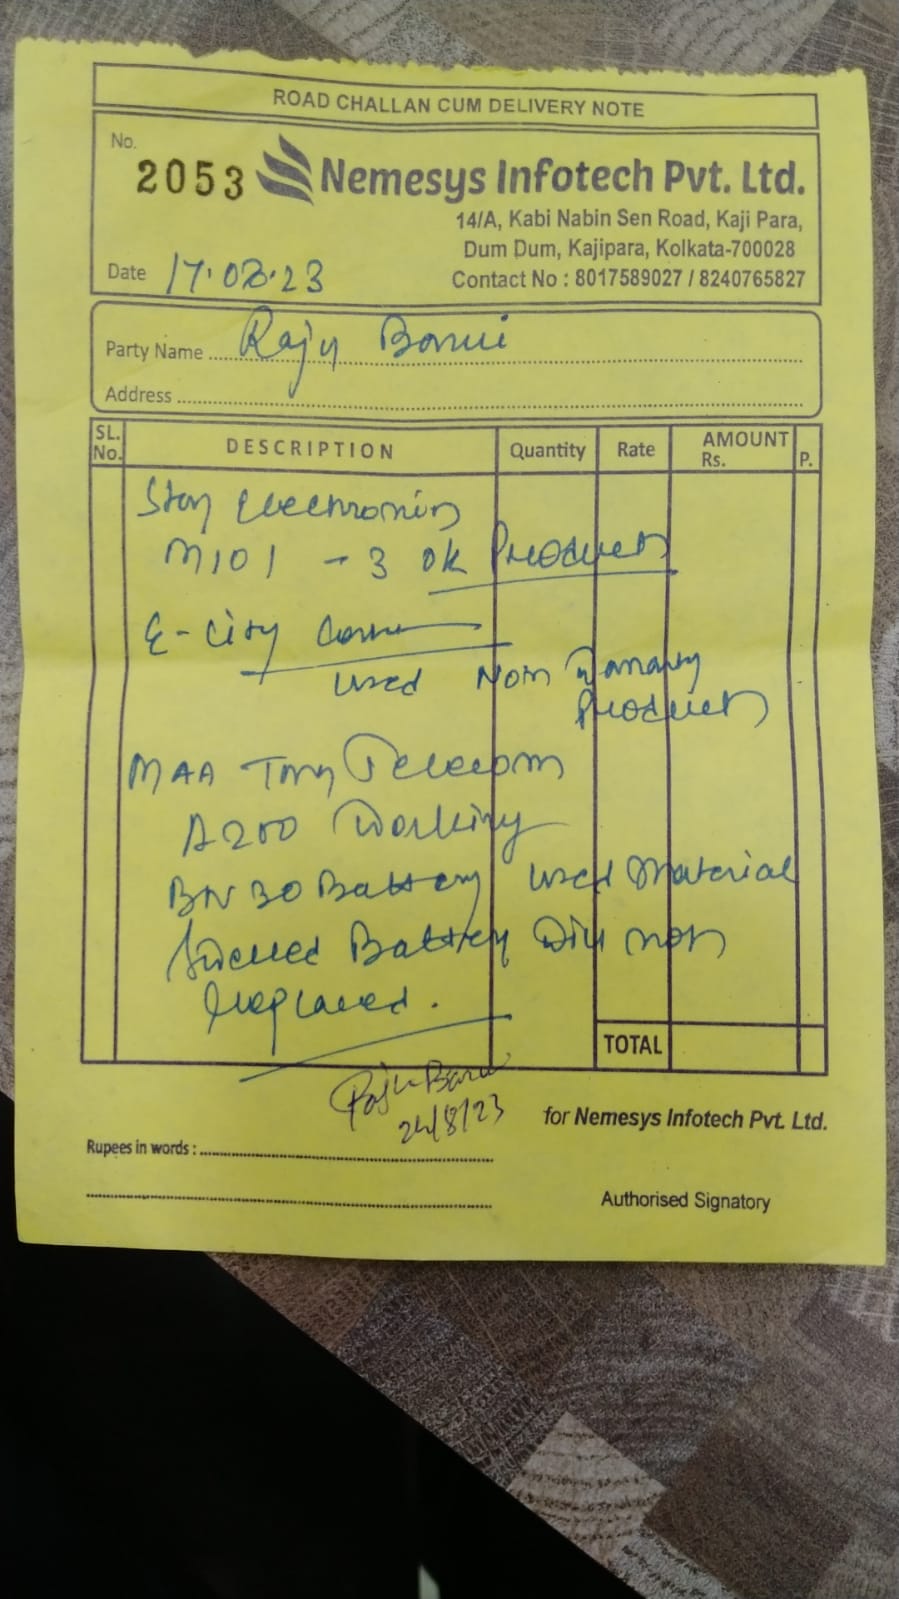 ROAD CHALLAN CUM DELIVERY NOTE
No.
2053 Nemesys Infotech Pvt. Ltd.
14/A, Kabi Nabin Sen Road, Kaji Para,
Dum Dum, Kajipara, Kolkata-700028
Date 17.08.23 Contact No : 8017589027 / 8240765827
Party Name Raju Barui
Address
SL. No. DESCRIPTION Quantity Rate AMOUNT Rs. P.
Electronics
M101 - 3 OK Product
E-City
used Non Product
MAA Telecom
A200 Working
BN30 Battery used Material
Battery Will not
Replaced.
TOTAL
Raju Barui
24/8/23
for Nemesys Infotech Pvt. Ltd.
Rupees in words :
Authorised Signatory